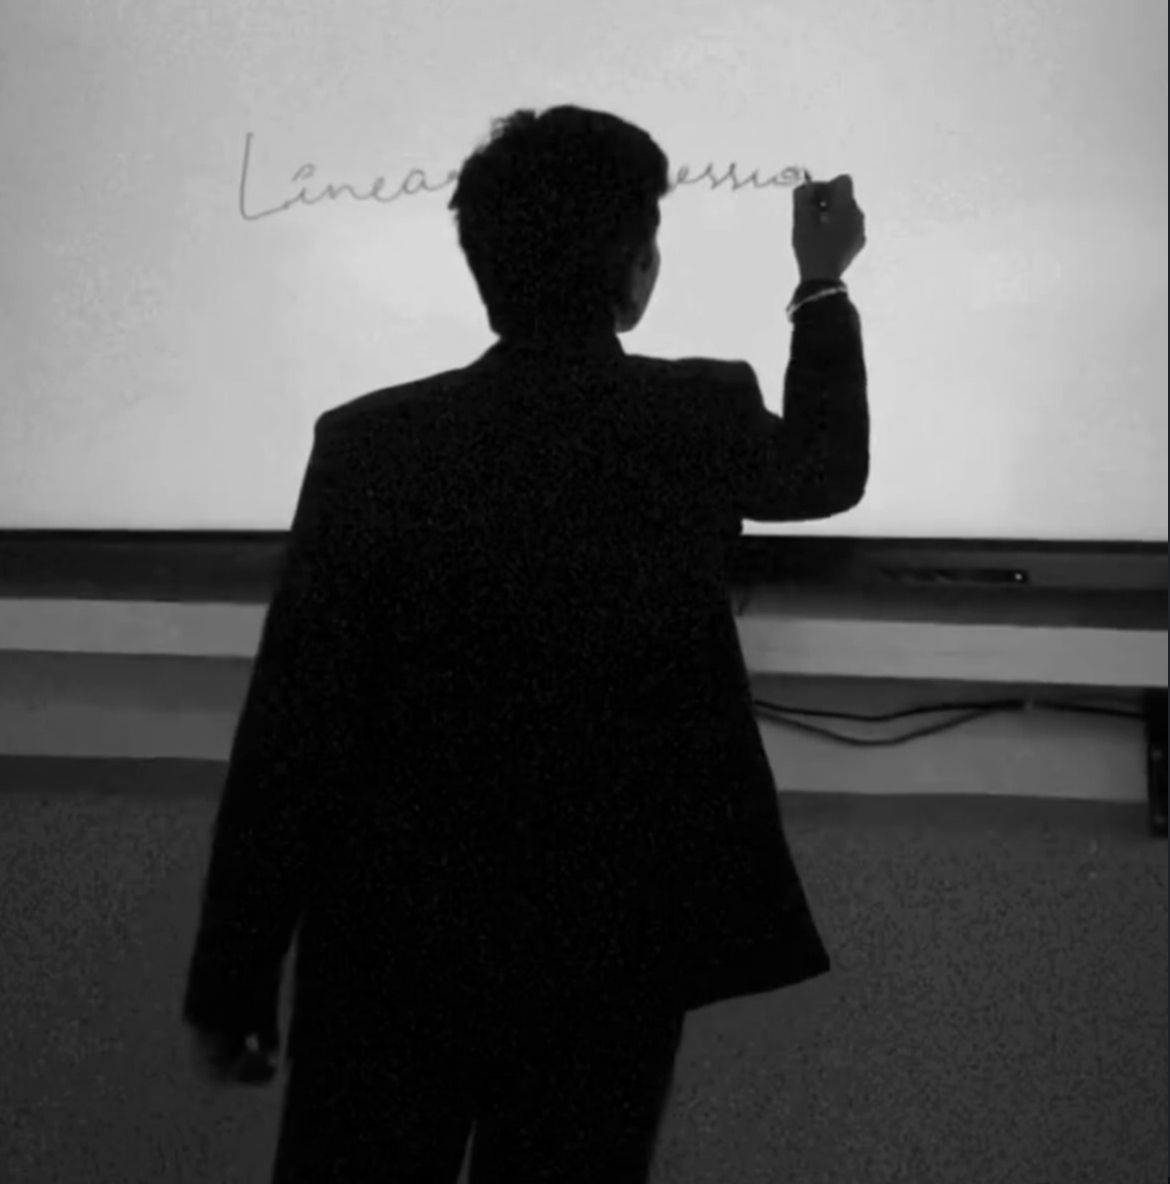 Linear essio